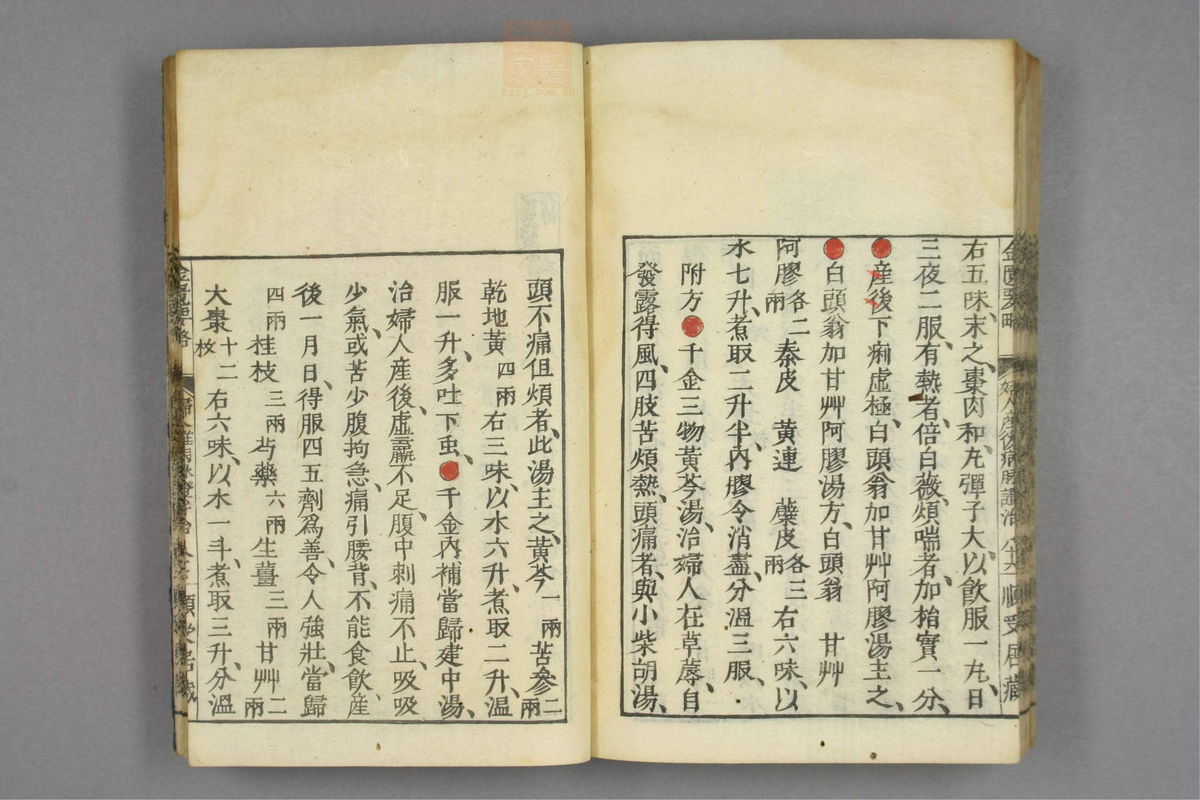 金匱要略 婦人産後病脉證治 八十六 順受居藏
右五味、末之、棗肉和、丸彈子大、以飲服一丸、日
三夜二服、有熱者、倍白薇、煩喘者、加栢實一分、
産後下痢虚極、白頭翁加甘艸阿膠湯主之、
白頭翁加甘艸阿膠湯方、白頭翁 甘艸
阿膠各二兩 秦皮 黄連 蘗皮各三兩 右六味、以
水七升、煮取二升半、內膠令消盡、分溫三服、
附方 千金三物黄芩湯、治婦人在草蓐、自
發露得風、四肢苦煩熱、頭痛者、與小柴胡湯、
頭不痛但煩者、此湯主之、黄芩一兩 苦參二兩
乾地黄四兩 右三味、以水六升、煮取二升、溫
服一升、多吐下虫、千金內補當歸建中湯、
治婦人産後、虚羸不足、腹中刺痛不止、吸吸
少氣、或苦少腹拘急、痛引腰背、不能食飲、産
後一月日、得服四五劑爲善、令人強壯、當歸
四兩 桂枝三兩 芍藥六兩 生薑三兩 甘艸二兩
大棗十二枚 右六味、以水一斗、煮取三升、分溫